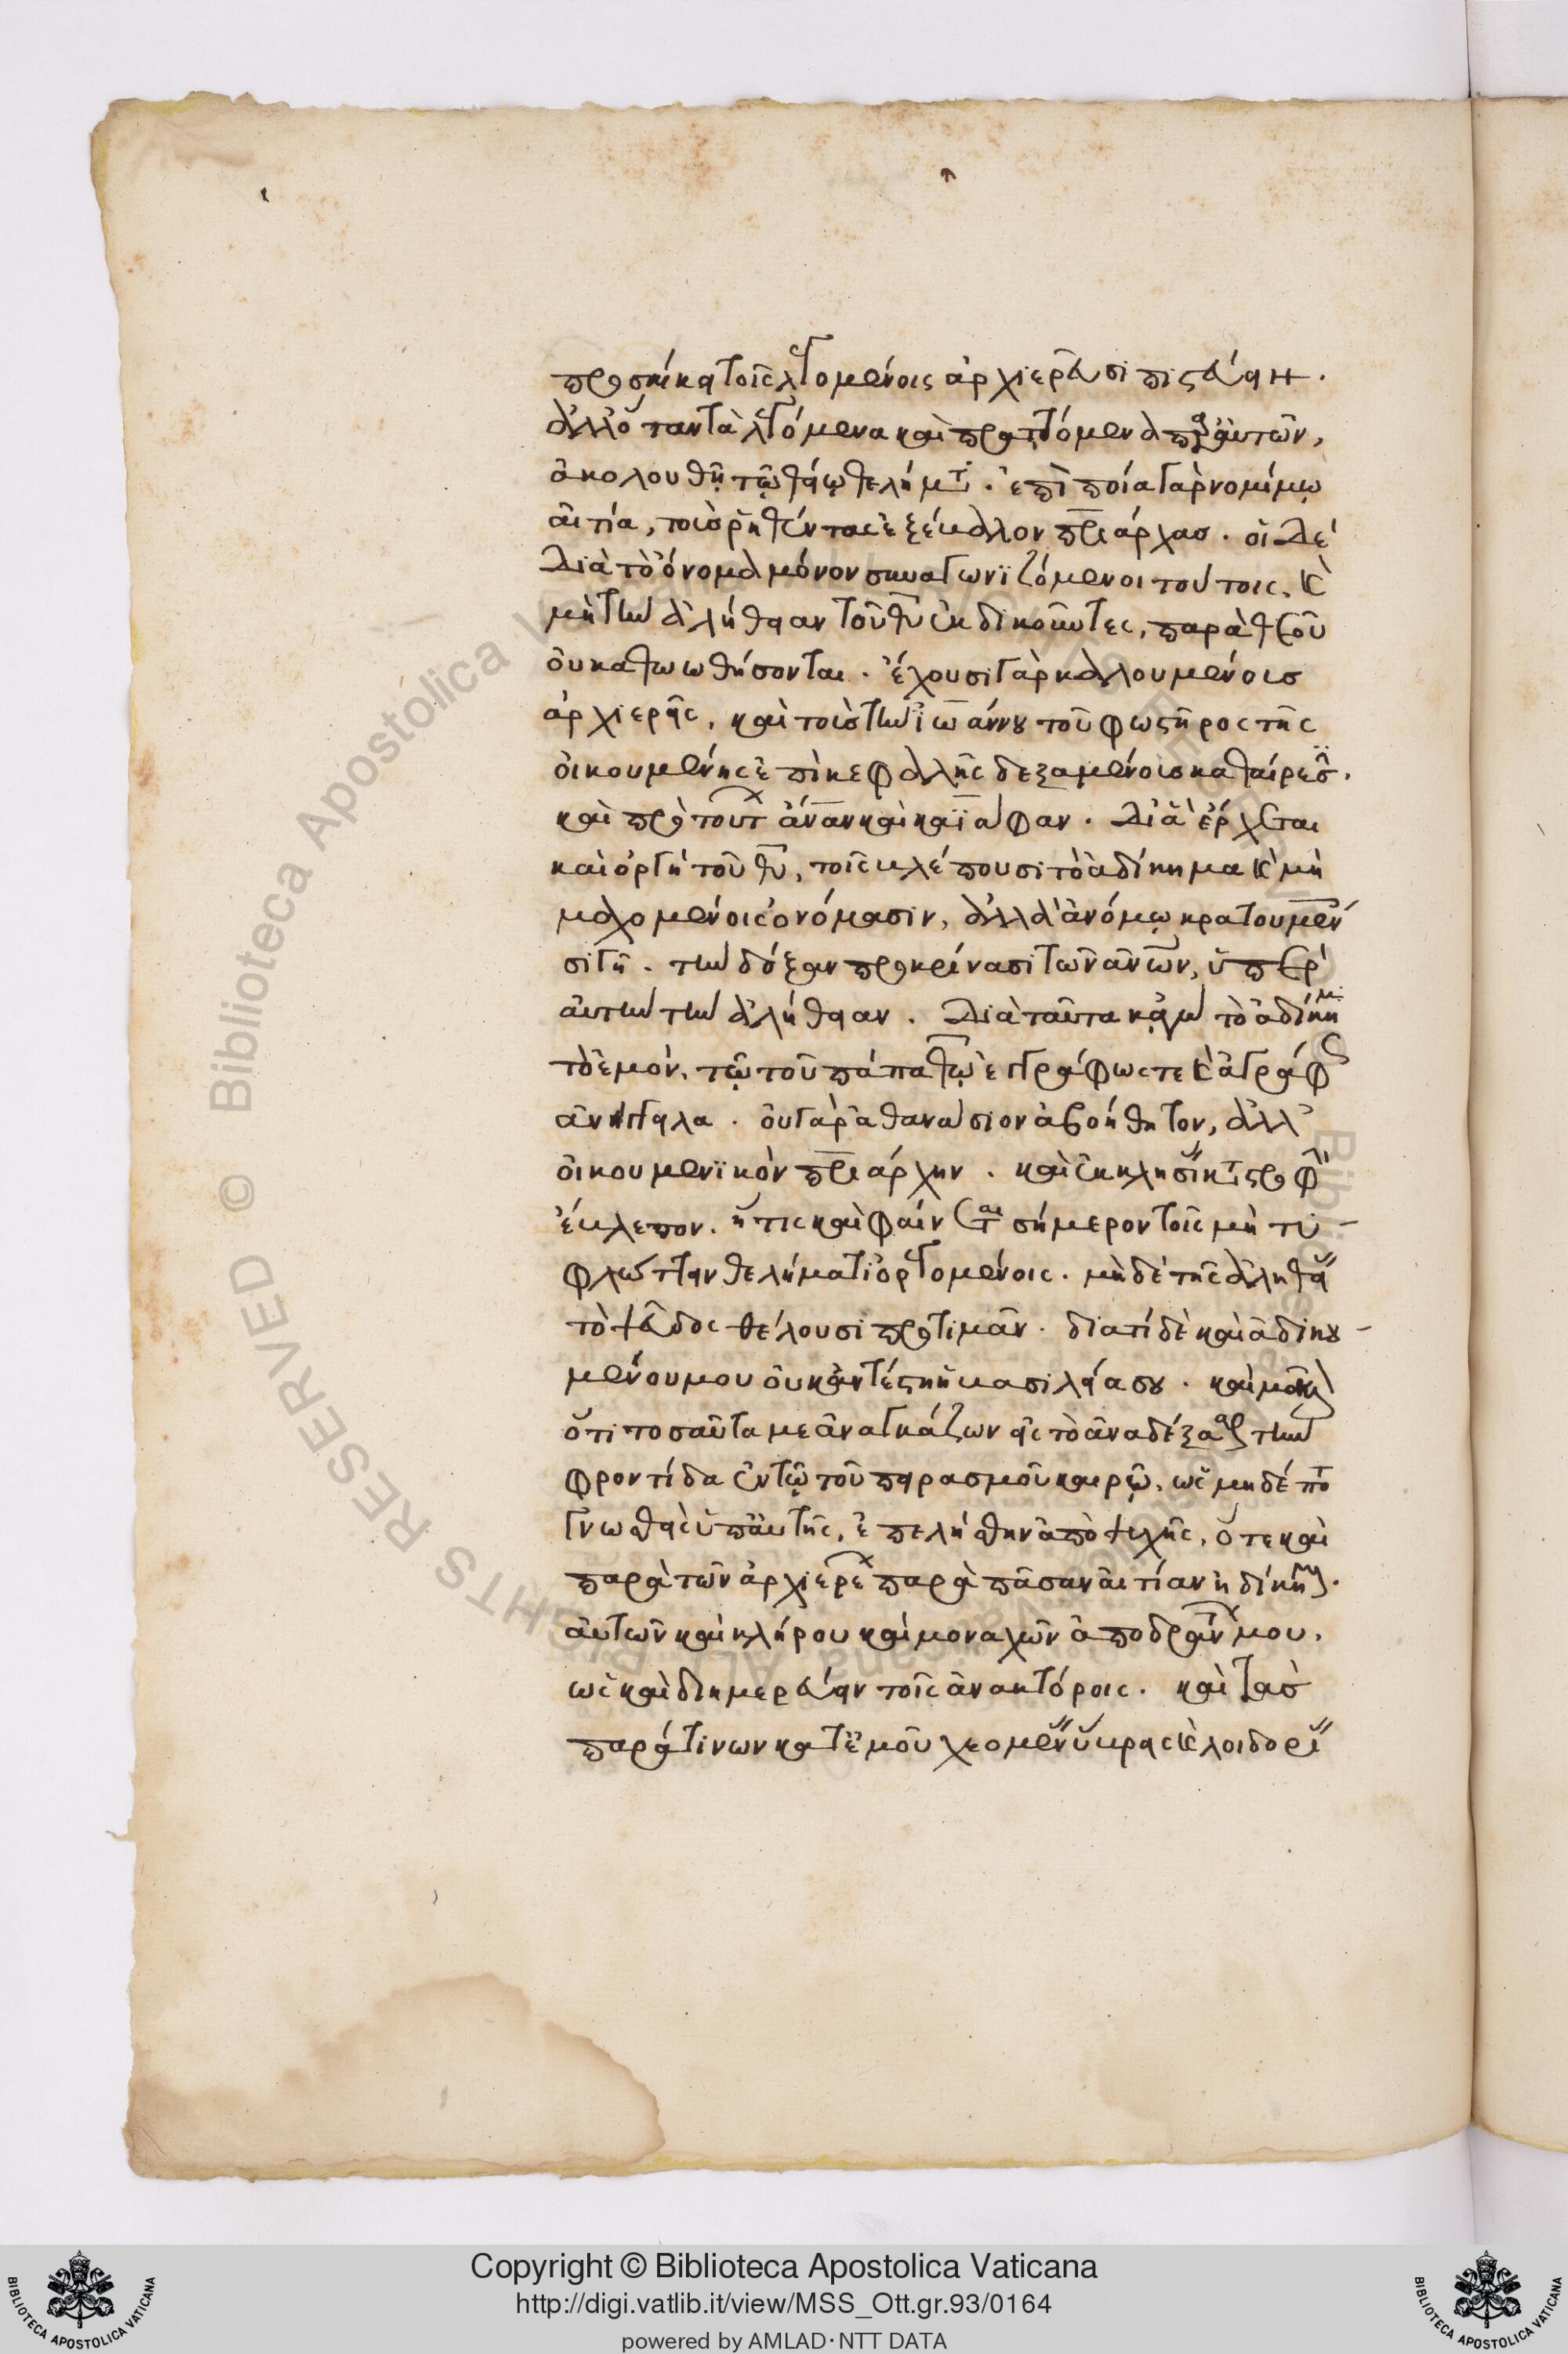 προσήκει τοῖς λεγομένοις ἀρχιερεῦσι πιστεύειν.
ἀλλ' ὅταν τὰ λεγόμενα καὶ πραττόμενα παρ' αὐτῶν,
ἀκολουθῇ τῷ θείῳ θελήματι. ἐπὶ ποία γὰρ νομίμω
αἰτία, τοὺς ῥηθέντας ἐξέβαλον πριάρχας. οἱ δὲ
διὰ τὸ ὄνομα μόνον συναγωνϊζόμενοι τούτοις, καὶ
μὴ τὴν ἀλήθειαν τοῦ θυ ἐκδικοῦντες, παρὰ θεοῦ
οὐκ ἀθωωθήσονται. ἔχουσι γὰρ καλουμένοις
ἀρχιερεῖς, καὶ τοὺς τὴν ἰωάννου τοῦ φωστῆρος τῆς
οἰκουμένης ἐπὶ κεφαλῆς δεξαμένοις καθαίρεσιν.
καὶ πρὸ τούτων ἄνναν καὶ καϊάφαν. διὰ ἔρχεται
καὶ ὀργὴ τοῦ θυ, τοῖς βλέπουσι τὸ ἀδίκημα καὶ μὴ
μαχομένοις ὀνόμασιν, ἀλλ' ἀνόμω κρατουμένοις
σιγῇ. τὴν δόξαν προκρίνασι τῶν ἀνων, ὑπὲρ
αὐτὴν τὴν ἀλήθειαν. διὰ ταῦτα κἀγὼ τὸ ἀδίκημα
τὸ ἐμόν, τῷ τοῦ πάπα θῷ ἐγγράφως τε καὶ ἀγράφως
ἀνήγγειλα. οὐ γὰρ ἀθανάσιον ἀβοήθητον, ἀλλ'
οἰκουμενϊκὸν πριάρχην. καὶ ἐκκλησίας καταστροφὴν
ἔβλεπον. ἥτις καὶ φαίνεται σήμερον τοῖς μὴ τυ-
φλώττειν θελήματι ὀργομένοις. μὴ δὲ τῆς ἀληθείας
τὸ ψεῦδος θέλουσι προτιμᾶν. διατί δὲ καὶ ἀδικου-
μένου μου οὐκ ἀντέστη ἡ βασιλεία σου. καὶ μάλιστα
ὅτι τοσαῦτα με ἀναγκάζων εἰς τὸ ἀναδέξασθαι τὴν
φροντίδα ἐν τῷ τοῦ πειρασμοῦ καιρῷ, ὡς μηδέποτε
γνωσθεὶς ὑπ' αὐτῆς, ἐπελήσθην ἀπὸ ψυχῆς, ὅτε καὶ
παρὰ τῶν ἀρχιερέων παρὰ πᾶσαν αἰτίαν ἠδίκημαι.
αὐτῶν καὶ κλήρου καὶ μοναχῶν ἀποδράντων μου.
ὡς καὶ διημερεύειν τοῖς ἀνακτόροις. καὶ τὰς
παρά τινων κατ' ἐμοῦ χεομένας ὕβρεις καὶ λοιδορίας
Copyright © Biblioteca Apostolica Vaticana
http://digi.vatlib.it/view/MSS_Ott.gr.93/0164
powered by AMLAD·NTT DATA